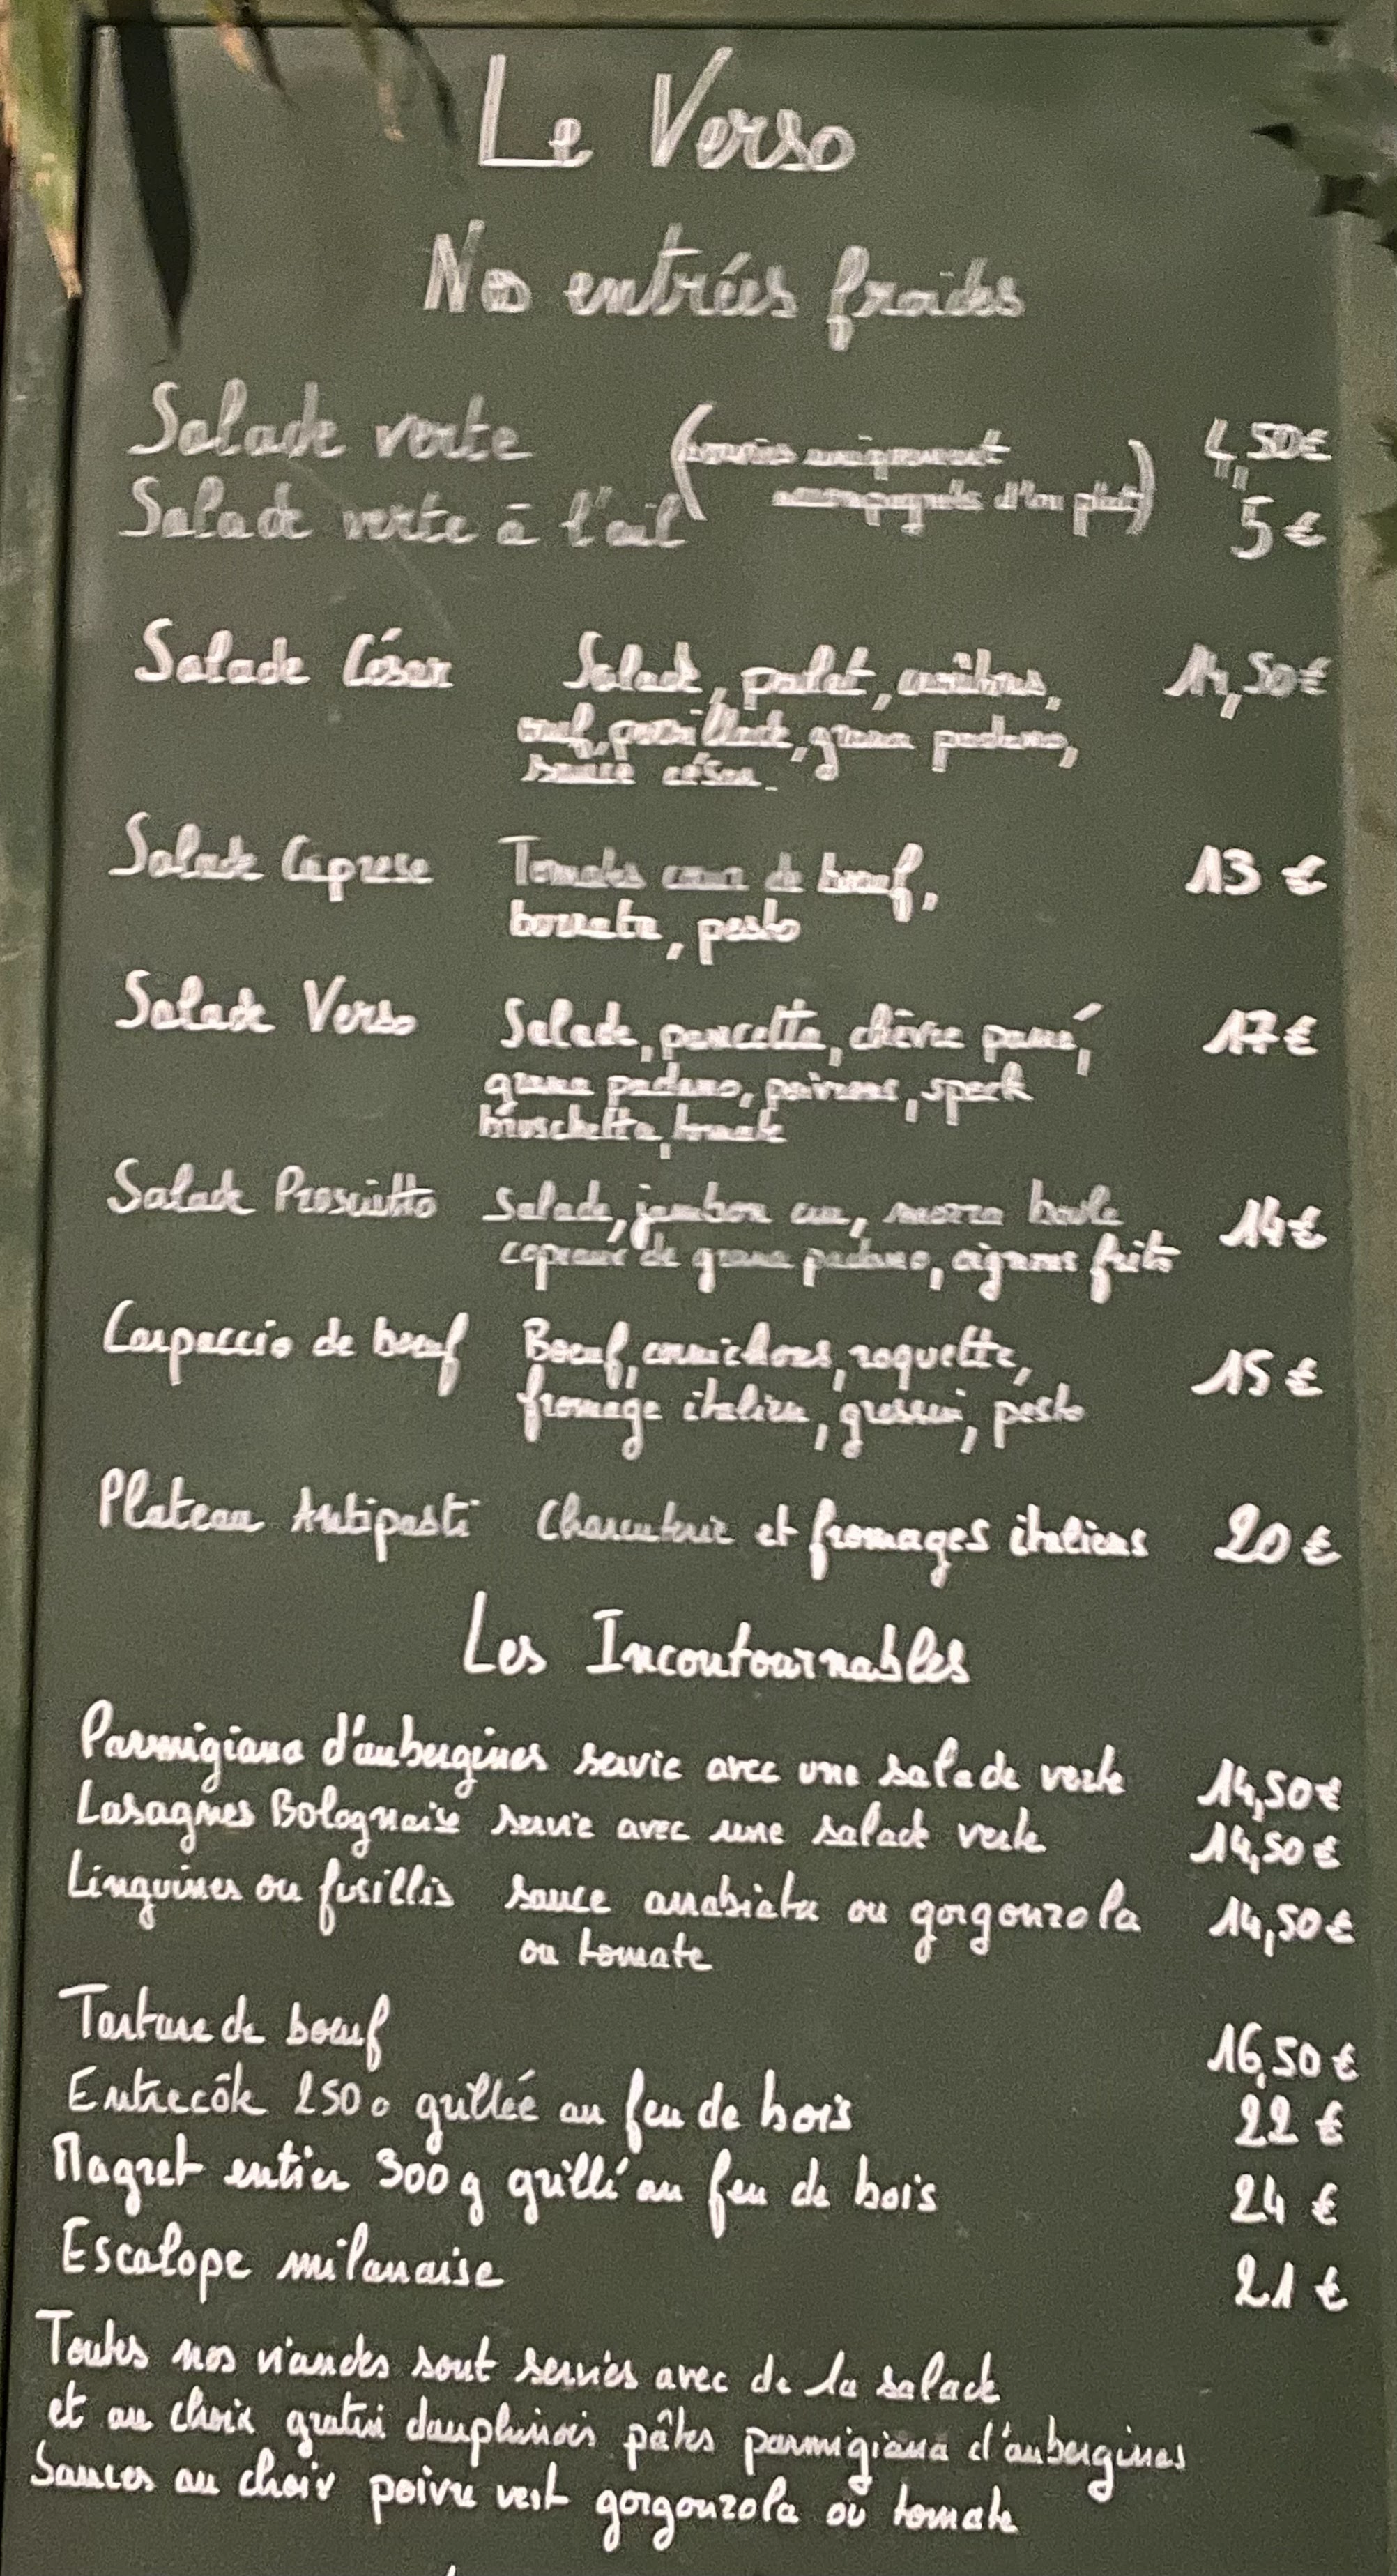 Le Verso
Nos entrées froides
Salade verte (servies uniquement 4,50€
Salade verte à l'ail accompagnés d'un plat) 5€
Salade César Salade, poulet, croûtons, 14,50€
oeuf, persillade, grana padano,
sauce césar.
Salade Caprese Tomates coeur de boeuf, 13 €
burrata, pesto
Salade Verso Salade, pancetta, chèvre pané, 17€
grana padano, poivrons, speck
bruschetta, tomate
Salade Prosciutto Salade, jambon cru, mozza boule 14€
copeaux de grana padano, oignons frits
Carpaccio de boeuf Boeuf, cornichons, roquette, 15 €
fromage italien, gressini, pesto
Plateau Antipasti Charcuterie et fromages italiens 20 €
Les Incoutournables
Parmigiana d'aubergines servie avec une salade verte 14,50€
Lasagnes Bolognaise servie avec une salade verte 14,50 €
Linguines ou fusillis sauce arrabiata ou gorgonzola 14,50 €
ou tomate
Tartare de boeuf 16,50 €
Entrecôte 250 grillée au feu de bois 22 €
Magret entier 300 g grillé au feu de bois 24 €
Escalope milanaise 21 €
Toutes nos viandes sont servies avec de la salade
et au choix gratin dauphinois pâtes parmigiana d'aubergines
Sauces au choix poivre vert gorgonzola ou tomate